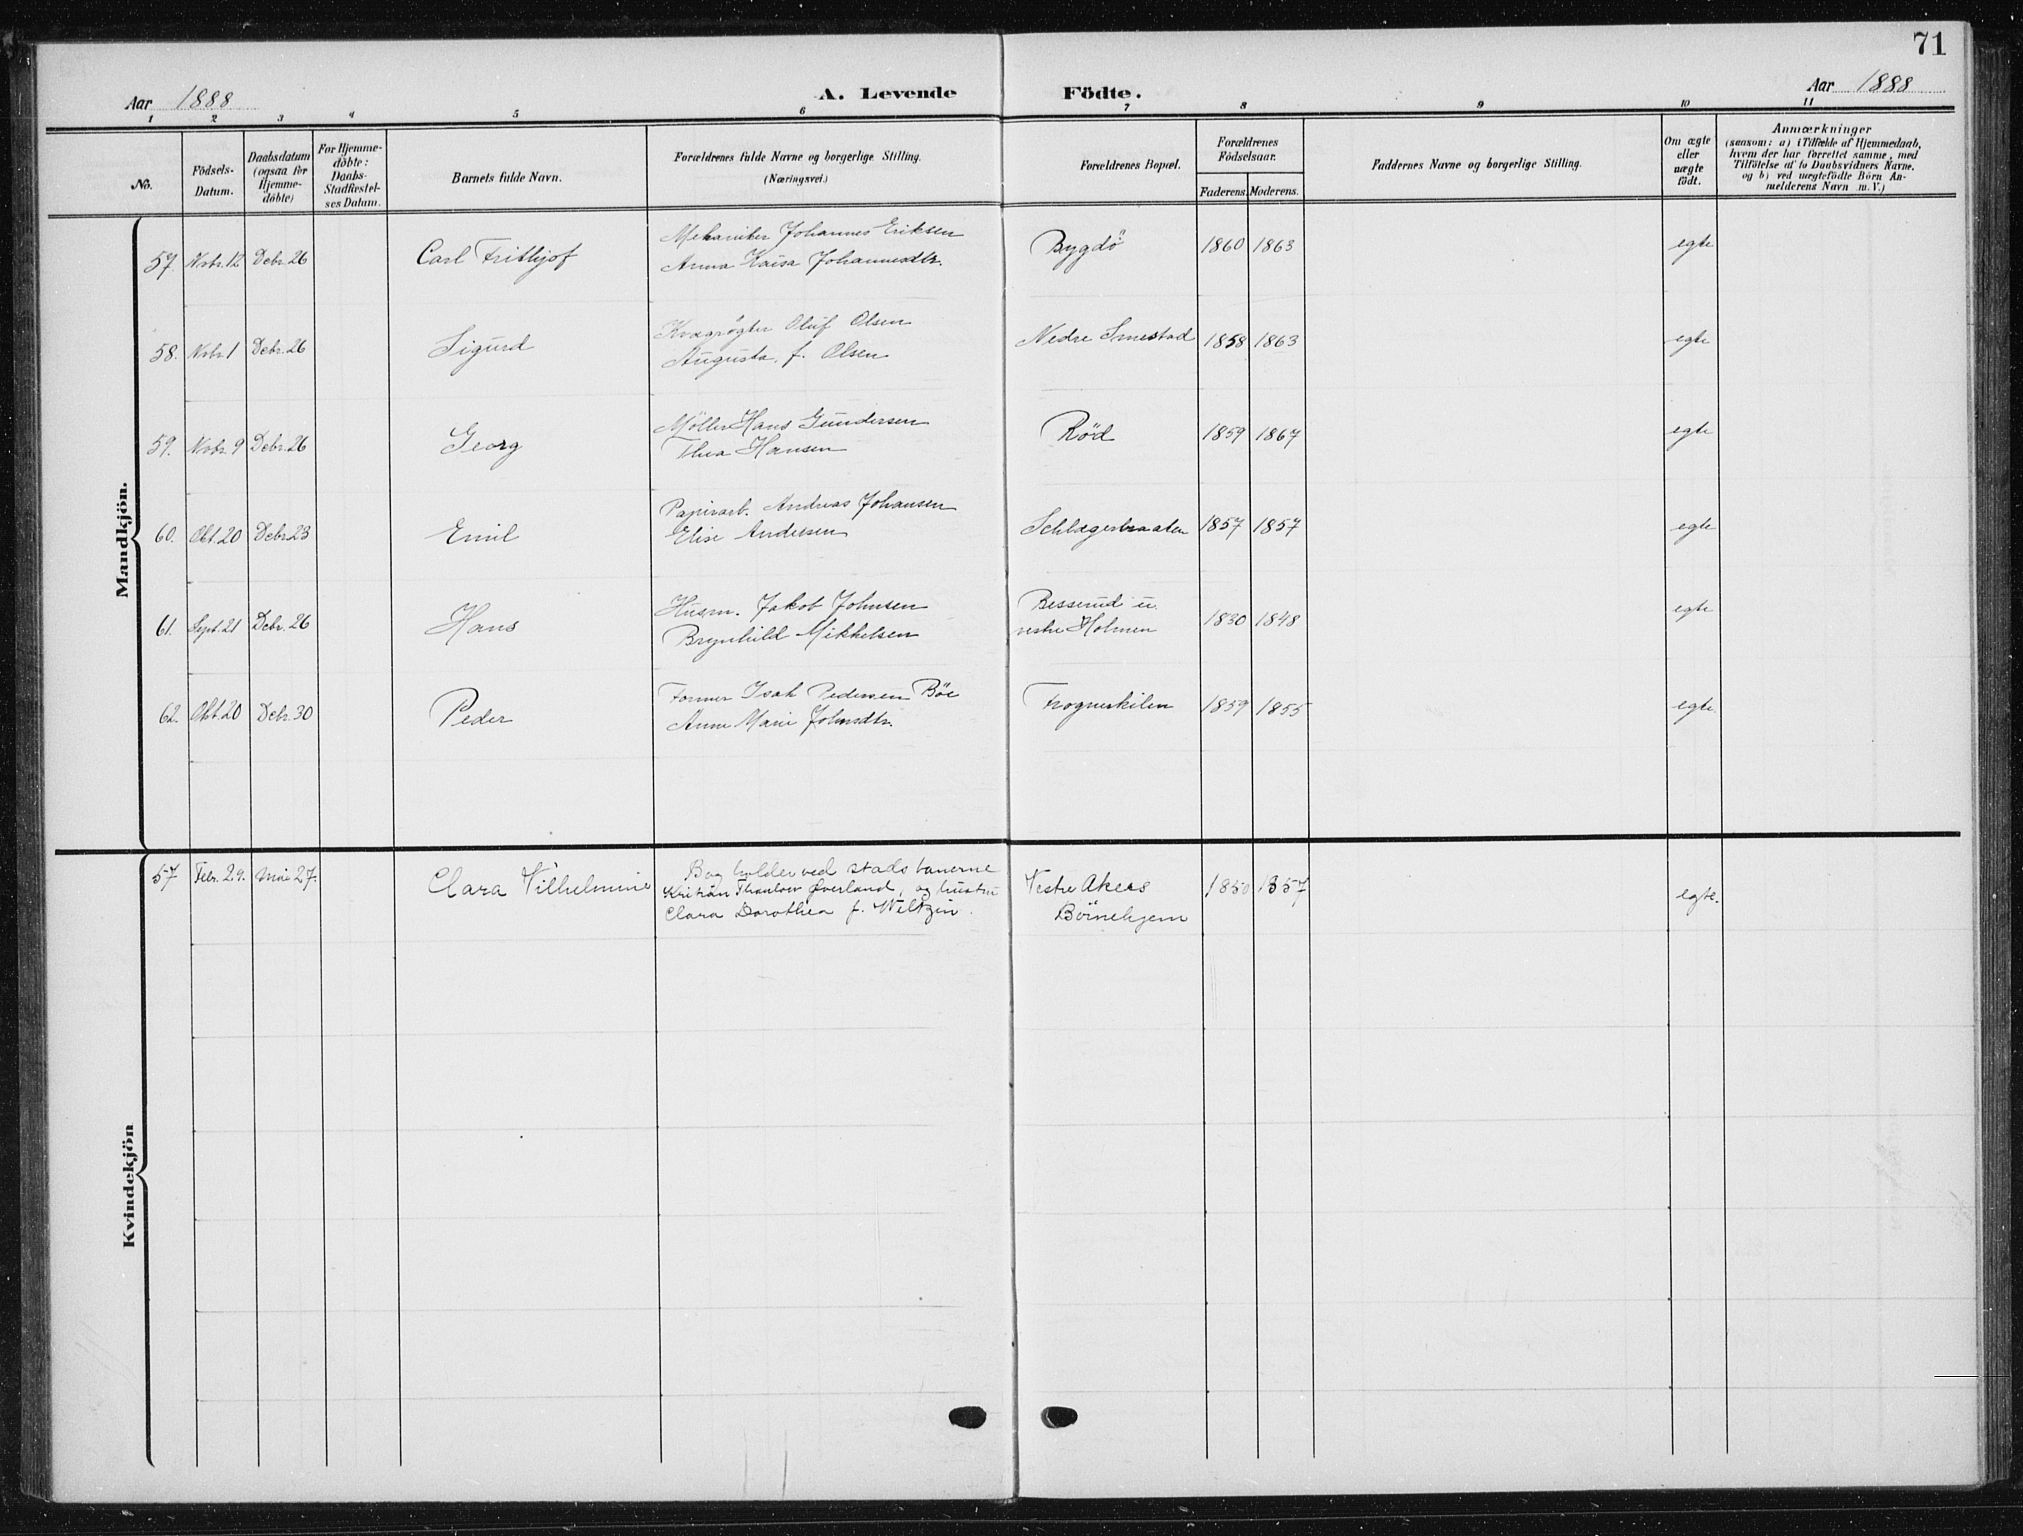 71
Aar 1888 A. Levende Födte. Aar 1888
1 2 3 4 5 6 7 8 9 10 11
No.
Födsels-
Datum.
Daabsdatum
(ogsaa for
Hjemme-
döbte)
For Hjemme-
döbte:
Daabs-
Stadfæstel-
ses Datum.
Barnets fulde Navn.
Forældrenes fulde Navne og borgerlige Stilling.
(Næringsvei.)
Forældrenes Bopæl.
Forældrenes
Födselsaar.
Faderens. Moderens.
Faddernes Navne og borgerlige Stilling.
Om ægte
eller
uægte
födt.
Anmærkninger
(saasom: a) i Tilfælde af Hjemmedaab,
hvem der har forrettet samme, med
Tilföielse af to Daabsvidners Navne.
og b) ved uægtefödte Börn An-
melderens Navn m. V.)
Mandkjön.
57. Novbr. 12 Debr. 26 Carl Frithjof Mekaniker Johannes Eriksen
Anna Kaisa Johannesdtr. Bygdö 1860 1863 egte
58. Nvbr. 1 Debr. 26 Sigurd Kvægrögter Oluf Olsen
Augusta f. Olsen Nedre Smestad 1858 1863 egte
59. Novbr. 9 Debr. 26 Georg Möller Hans Gundersen
Thea Hansen Röd 1859 1867 egte
60. Okt. 20 Debr. 23 Emil Papirarb. Andreas Johansen
Elise Andersen Schlægerbraaten 1857 1857 egte
61. Sept. 21 Debr. 26 Hans Husm. Jakob Johnsen
Brynhild Mikkelsen Besserud u.
vestre Holmen 1830 1848 egte
62. Okt. 20 Debr. 30 Peder Former Isak Pedersen Böe
Anne Marie Johnsdtr. Frognerkilen 1859 1855 egte.
Kvindekjön
57 Febr. 29. Mai 27. Clara Vilhelmine Bogholder ved stadsbanerne
Kristian Thaulow Øverland, og hustru
Clara Dorothea f. Weltzin. Vestre Akers
Börnehjem 1850 1857 egte.